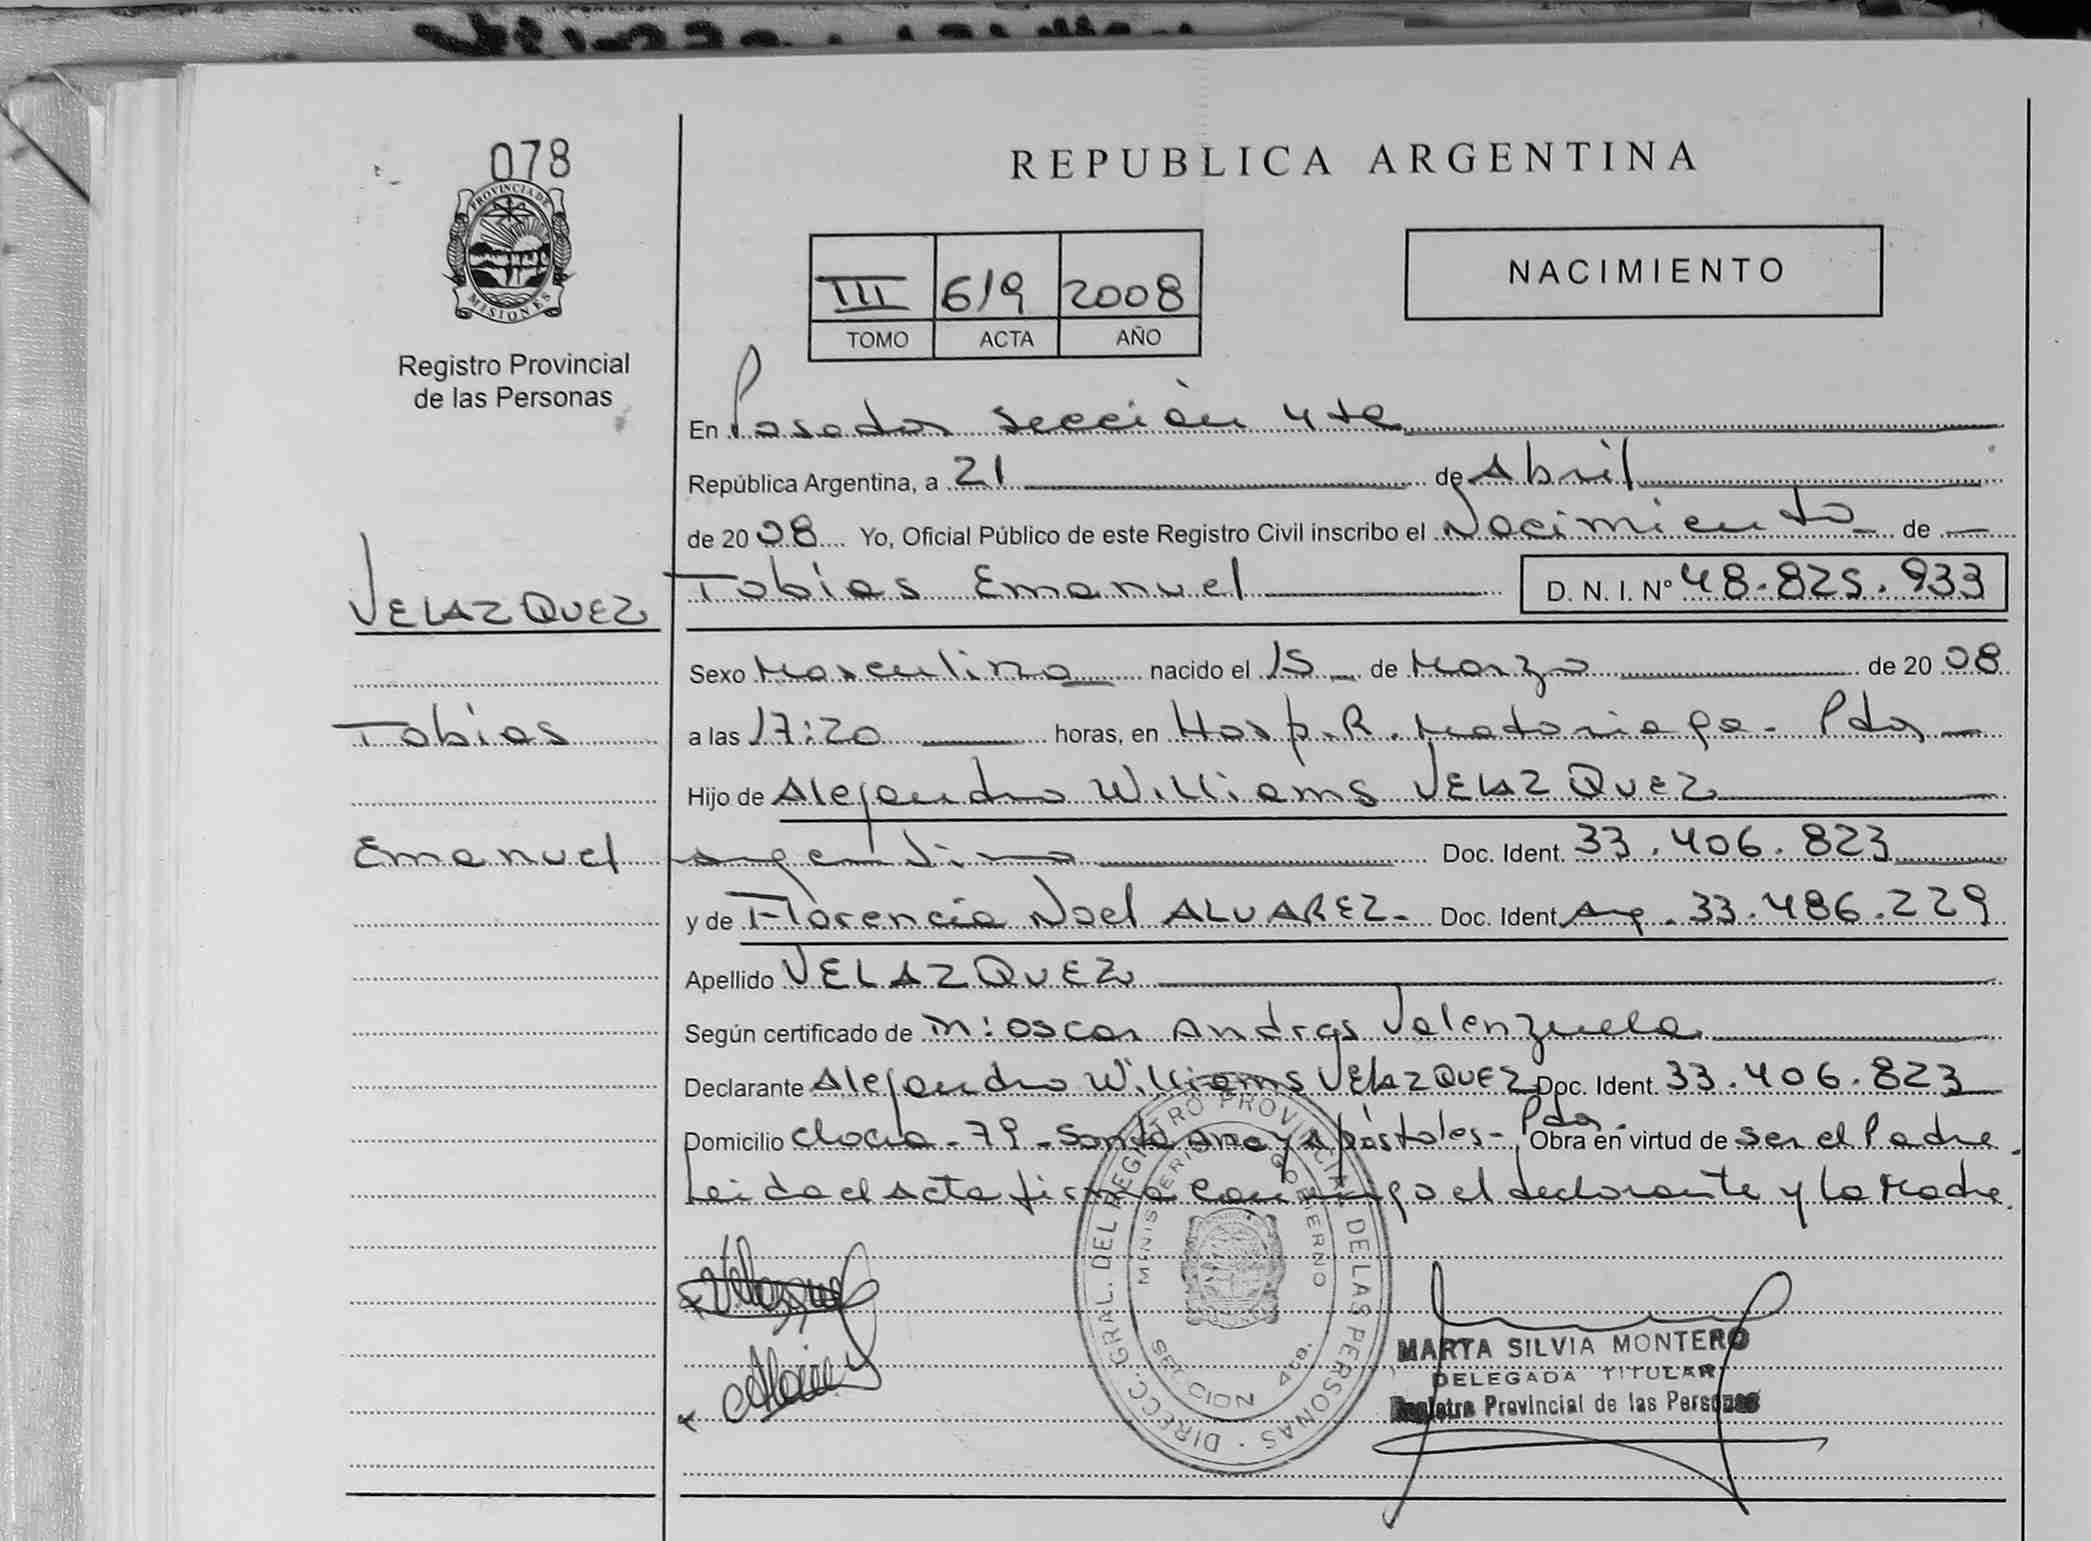 078
PROVINCIA DE
MISIONES
Registro Provincial
de las Personas
REPUBLICA ARGENTINA
III 619 2008
TOMO ACTA AÑO
NACIMIENTO
En Posadas sección 4ta
República Argentina, a 21 de Abril
de 2008 Yo, Oficial Público de este Registro Civil inscribo el Nacimiento de
VELAZQUEZ Tobias Emanuel D. N. I. Nº 48.825.933
Sexo Masculino nacido el 15 de Marzo de 2008
Tobias a las 17:20 horas, en Hosp. R. Madariaga - Pdas
Hijo de Alejandro Williams VELAZQUEZ
Emanuel argentino Doc. Ident. 33.406.823
y de Florencia Noel ALVAREZ - Doc. Ident Arg. 33.486.229
Apellido VELAZQUEZ
Según certificado de m: Oscar Andres Valenzuela
Declarante Alejandro Williams VELAZQUEZ Doc. Ident. 33.406.823
Domicilio - 79 - Santa Ana y Apóstoles - Pdas. Obra en virtud de ser el Padre.
Leida el acta firma conmigo el declarante y la Madre.
DIRECC. GRAL. DEL REGISTRO PROVINCIAL DE LAS PERSONAS
MINISTERIO GOBIERNO
SECCION 4ta.
MARTA SILVIA MONTERO
DELEGADA TITULAR
Registro Provincial de las Personas